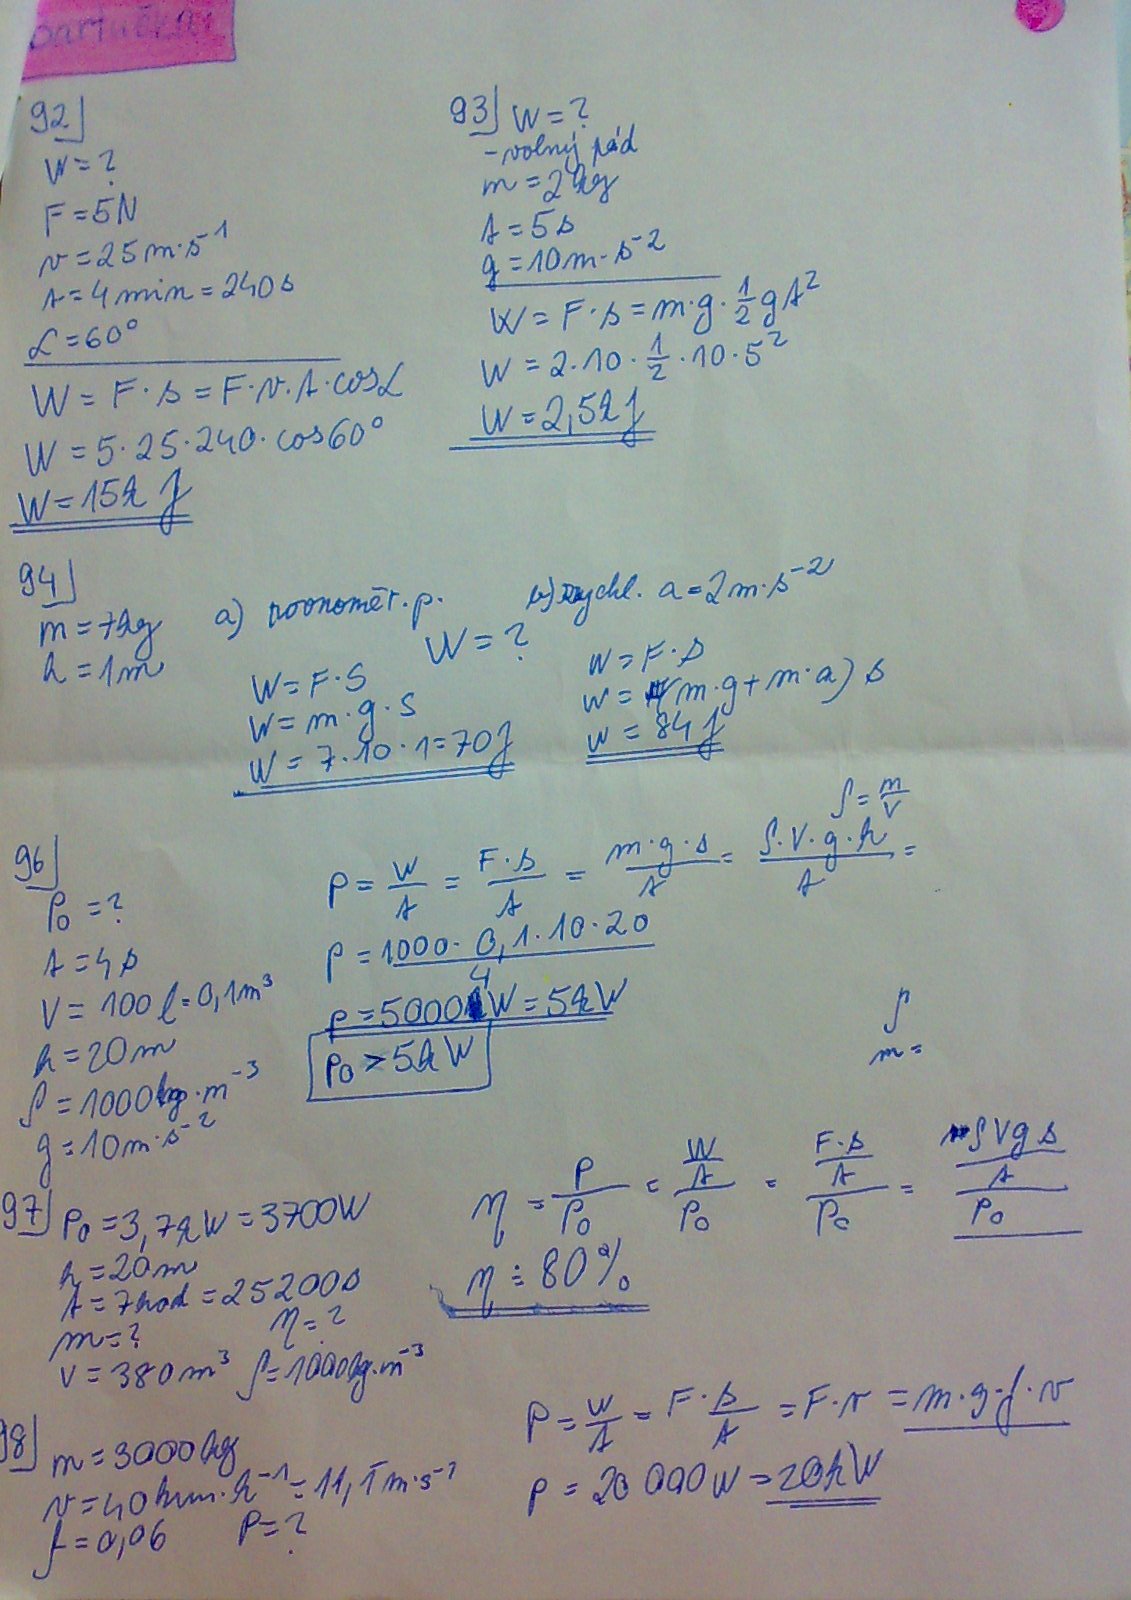 92
W = ?
F = 5N
v = 25 m·s⁻¹
t = 4 min = 240 s
α = 60°
W = F·s = F·v·t·cosα
W = 5·25·240·cos60°
W = 15k J
93 W = ?
- volný pád
m = 2 kg
t = 5 s
g = 10 m·s⁻²
W = F·s = m·g·½gt²
W = 2·10·½·10·5²
W = 2,5k J
94
m = 7kg
h = 1 m
a) rovnoměr. p.
b) zrychl. a = 2 m·s⁻²
W = ?
W = F·S
W = m·g·S
W = 7·10·1 = 70 J
W = F·s
W = (m·g + m·a) s
W = 84 J
96
P₀ = ?
t = 4 s
V = 100 l = 0,1 m³
h = 20 m
ρ = 1000 kg·m⁻³
g = 10 m·s⁻²
ρ = m/V
P = W/t = F·s/t = m·g·s/t = ρ·V·g·h/t =
P = 1000·0,1·10·20/4
P = 5000 W = 5kW
P₀ > 5kW
ρ
m =
97 P₀ = 3,7kW = 3700W
h = 20 m
t = 7 hod = 25200 s
m = ? η = ?
V = 380 m³ ρ = 1000 kg·m⁻³
η = P/P₀ = W/t/P₀ = F·s/t/P₀ = ρVgs/t/P₀
η ≐ 80%
98 m = 3000 kg
v = 40 km·h⁻¹ = 11,1 m·s⁻¹
f = 0,06 P = ?
P = W/t = F·s/t = F·v = m·g·f·v
P = 20 000 W = 20kW